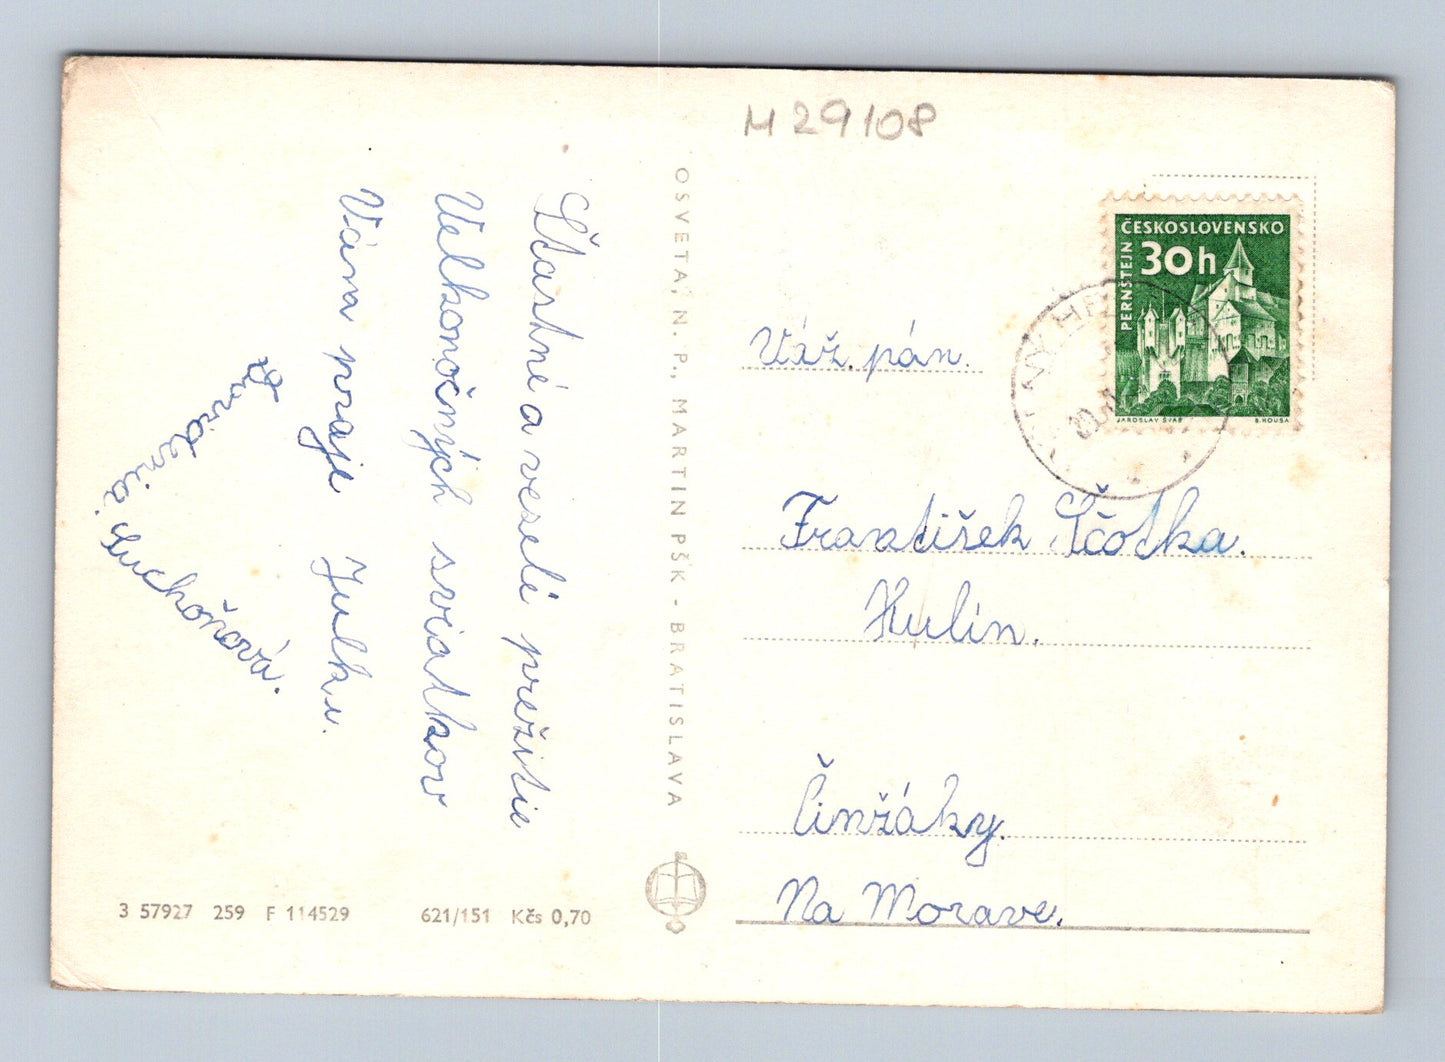 M 29108
Šťastné a veselé prežitie
Velkonočných sviatkov
Vám praje Julku.
Dovidenia.
Suchoňová.
OSVETA, N. P., MARTIN PŠK - BRATISLAVA
ČESKOSLOVENSKO
30h
PERNŠTEJN
JAROSLAV ŠVÁB
B. HOUSA
Váž. pán.
František Ščotka.
Hulín.
Činžáky.
Na Morave.
3 57927 259 F 114529 621/151 Kčs 0,70